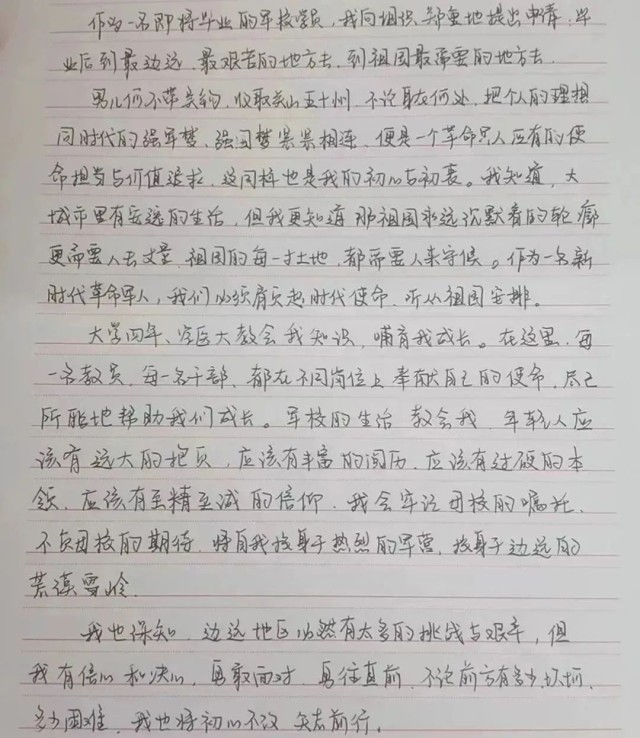 作为一名即将毕业的军校学员，我向组织郑重地提出申请：毕
业后到最边远、最艰苦的地方去，到祖国最需要的地方去。
男儿何不带吴钩，收取关山五十州，不论身在何处，把个人的理想
同时代的强军梦、强国梦紧紧相连，便是一个革命军人应有的使
命担当与价值追求，这同样也是我的初心与初衷。我知道，大
城市里有安逸的生活，但我更知道那祖国永远沉默着的轮廓
更需要人去丈量，祖国的每一寸土地，都需要人来守候。作为一名新
时代革命军人，我们必须肩负起时代使命，听从祖国安排。
大学四年、空医大教会我知识，哺育我成长。在这里，每
一名教员，每一名干部，都在不同岗位上奉献自己的使命，尽己
所能地帮助我们成长。军校的生活教会我，年轻人应
该有远大的抱负，应该有丰富的阅历，应该有过硬的本
领，应该有至精至诚的信仰，我会牢记母校的嘱托，
不负母校的期待，将自我投身于热烈的军营，投身于边远的
荒漠雪岭。
我也深知，边远地区必然有太多的挑战与艰辛，但
我有信心和决心，勇敢面对，勇往直前，不论前方有多少坎坷，
多少困难，我也将初心不改，矢志前行。